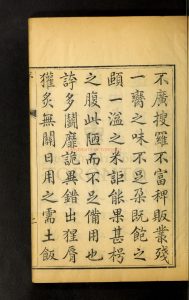 不廣搜羅不富稗販叢殘
一臠之味不足朶旣飽之
頤一溢之米詎能果甚枵
之腹此陋而不足備用也
誇多鬭靡詭異錯出猩脣
玃炙無關日用之需土飯